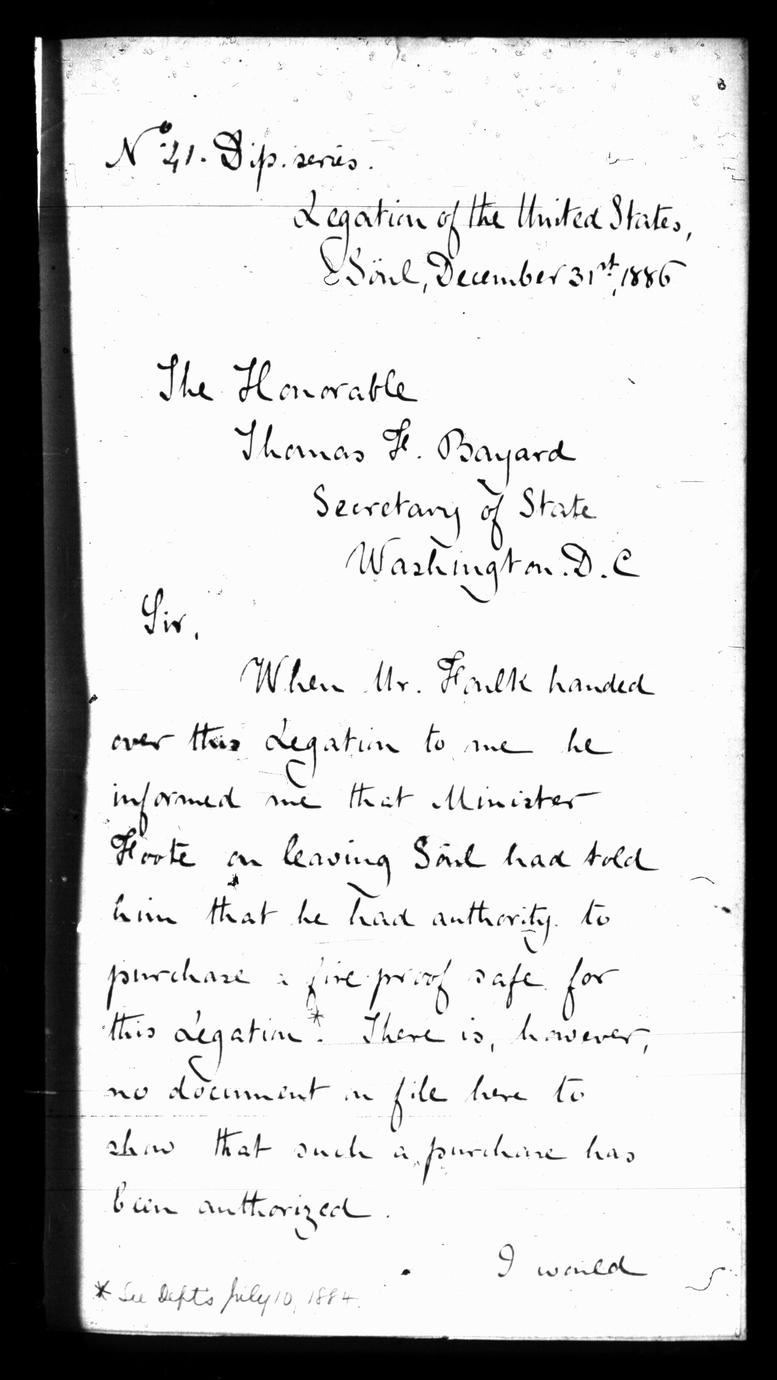 Nº 41. Dip. series.
Legation of the United States,
Söul, December 31st, 1886
The Honorable
Thomas F. Bayard
Secretary of State
Washington. D. C
Sir,
When Mr. Foulk handed
over this Legation to me he
informed me that Minister
Foote on leaving Söul had told
him that he had authority to
purchase a fire-proof safe for
this Legation*. There is, however,
no document on file here to
show that such a purchase has
been authorized.
I would
* See Dept's July 10, 1884.